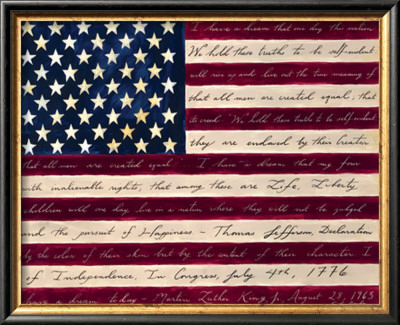 I have a dream that one day this nation
We hold these truths to be self-evident
will rise up and live out the true meaning of
that all men are created equal, that
its creed: "We hold these truths to be self-evident
they are endowed by their Creator
that all men are created equal." I have a dream that my four
with inalienable rights, that among these are Life, Liberty
children will one day live in a nation where they will not be judged
and the pursuit of Happiness - Thomas Jefferson, Declaration
by the color of their skin but by the content of their character I
of Independence, In Congress, July 4th, 1776
have a dream today - Martin Luther King, Jr, August 28, 1963